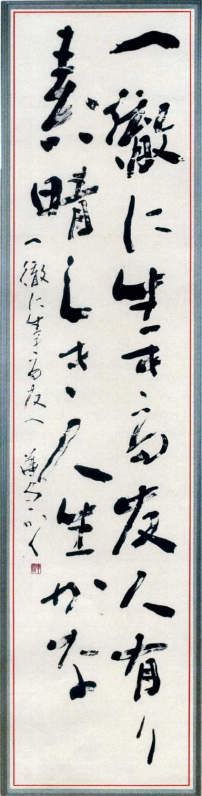 一徹に生きる友人有り
素晴しき人生かな
一徹に生きる友へ